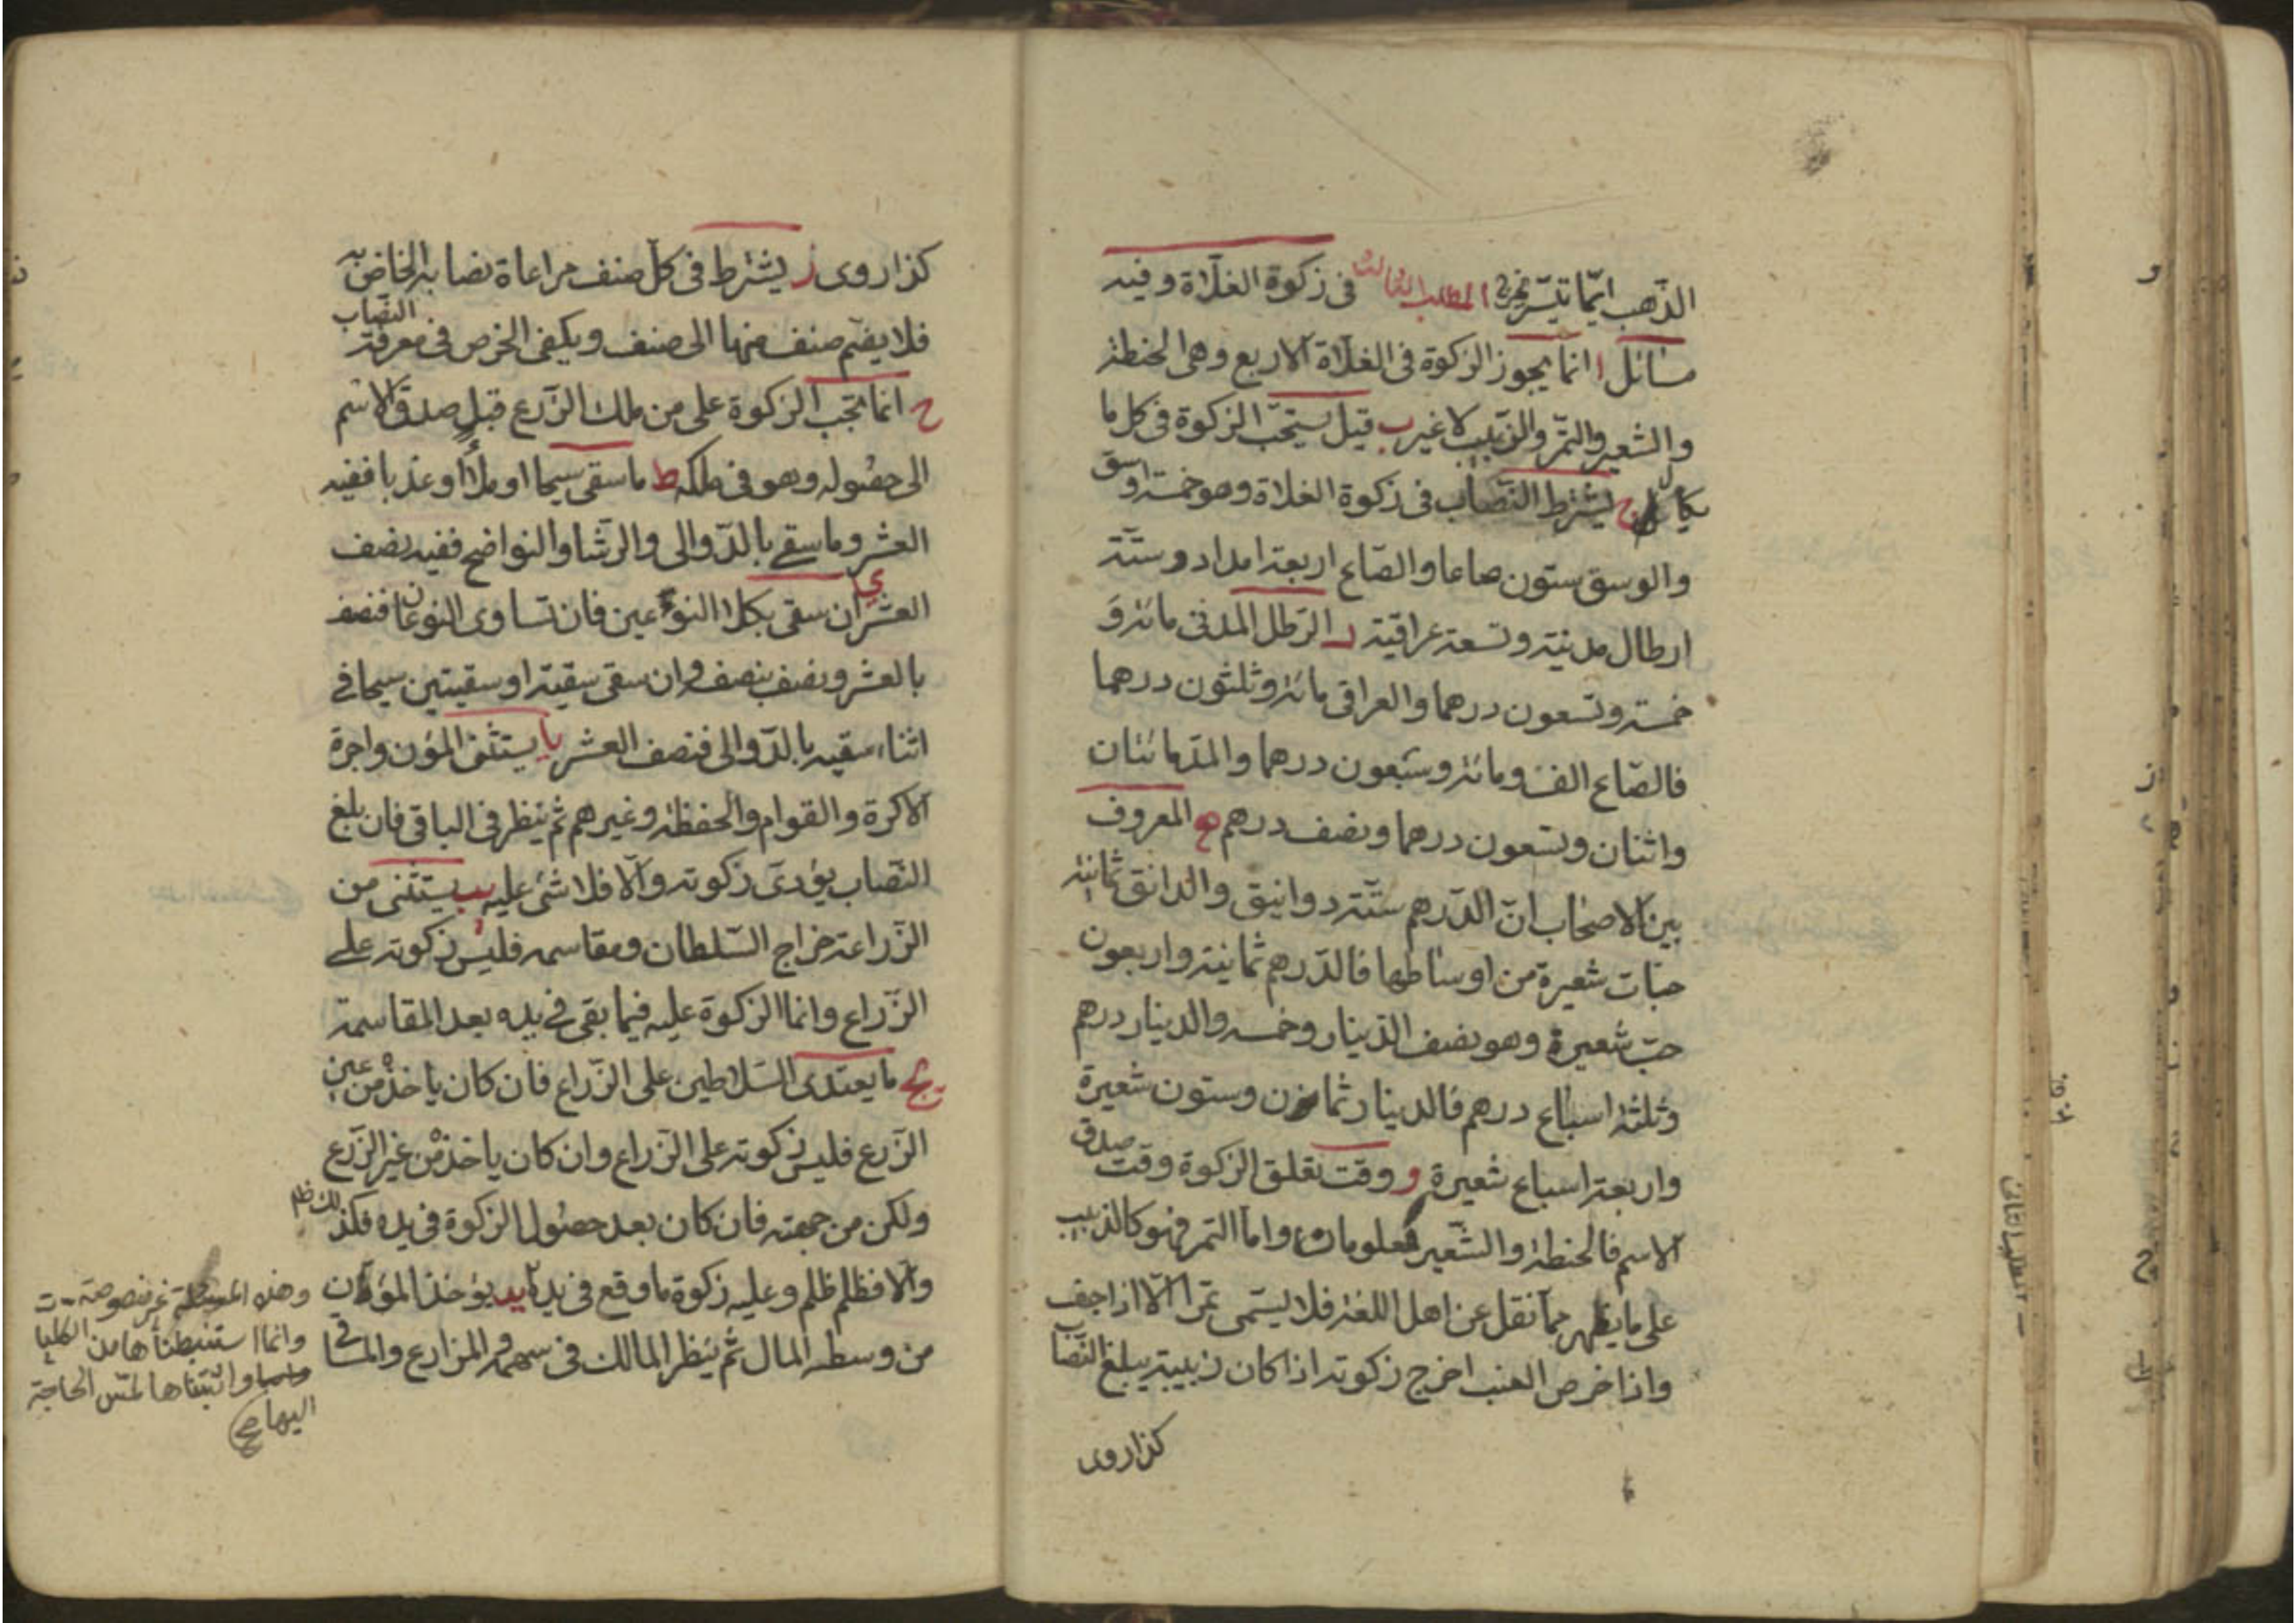 الذّهب ايّما تيسّر يخرج المطلب الثالث فى زكوة الغلّاة وفيه
مسائل ا انما يجوز الزكوة فى الغلّاة الاربع وهى الحنطة
والشعير والتمر والزبيب لا غير ب قيل يستحبّ الزكوة فى كل ما
يكال ج يشترط النّصاب فى زكوة الغلاة وهو خمسة اوسق
والوسق ستون صاعا والصّاع اربعة امداد وستّة
ارطال مدنيّة وتسعة عراقيّة د الرّطل المدنى مائة و
خمسة وتسعون درهما والعراقى مائة وثلثون درهما
فالصّاع الف ومائة وسبعون درهما والمدّ مائتان
واثنان وتسعون درهما ونصف درهم ه المعروف
بين الاصحاب انّ الدّرهم ستّة دوانيق والدانق ثمانية
حبّات شعيرة من اوساطها فالدّرهم ثمانية واربعون
حبّ شعيرة وهو نصف الدّينار وخمسه والدينار درهم
وثلثة اسباع درهم فالدينار ثمان وستون شعيرة
واربعة اسباع شعيرة و وقت تعلق الزكوة وقت صدق
الاسم فالحنطة والشّعير معلومان واما التمر فهو كالزبيب
على ما يظهر ممّا نقل عن اهل اللغة فلا يسمّى تمرا الّا اذا جفّ
واذا خرص العنب اخرج زكوته اذا كان زبيبه يبلغ النّصاب
كذا روى
كذا روى ز يشترط فى كلّ صنف مراعاة نصابه الخاصّ به
فلا يضمّ صنف منها الى صنف ويكفى الخرص فى معرفة النّصاب
ح انما تجب الزكوة على من ملك الزّرع قبل صدق الاسم
الى حصوله وهو فى ملكه ط ما سقى سيحا او بعلا او عذبا ففيه
العشر وما سقى بالدّوالى والرّشا والنواضح ففيه نصف
العشر ى ان سقى بكلا النوعين فان تساوى النوعان فنصف
بالعشر ونصف بنصف وان سقى سقية او سقيتين سيحا فى
اثناء سقيه بالدّوالى فنصف العشر يا يستثنى المؤن واجرة
الاكرة والقوام والحفظة وغيرهم ثم ينظر فى الباقى فان بلغ
النّصاب يؤدّى زكوته والّا فلا شئ عليه يب يستثنى من
الزّراعة خراج السّلطان ومقاسمه فليس زكوته على
الزّراع وانما الزكوة عليه فيما بقى فى يده بعد المقاسمة
يج ما يعتدى السّلاطين على الزّراع فان كان ياخذ من عين
الزّرع فليس زكوته على الزّراع وان كان ياخذ من غير الزّرع
ولكن من جهته فان كان بعد حصول الزكوة فى يده فكذلك
والّا فظلم ظلم وعليه زكوة ما وقع فى يده يد يؤخذ المؤن
من وسط المال ثم ينظر المالك فى سهمه والمزارع والمساقى
وهذه المسئلة غير منصوصة
وانما استنبطناها من الكليات
واثبتناها لمسّ الحاجة
اليها